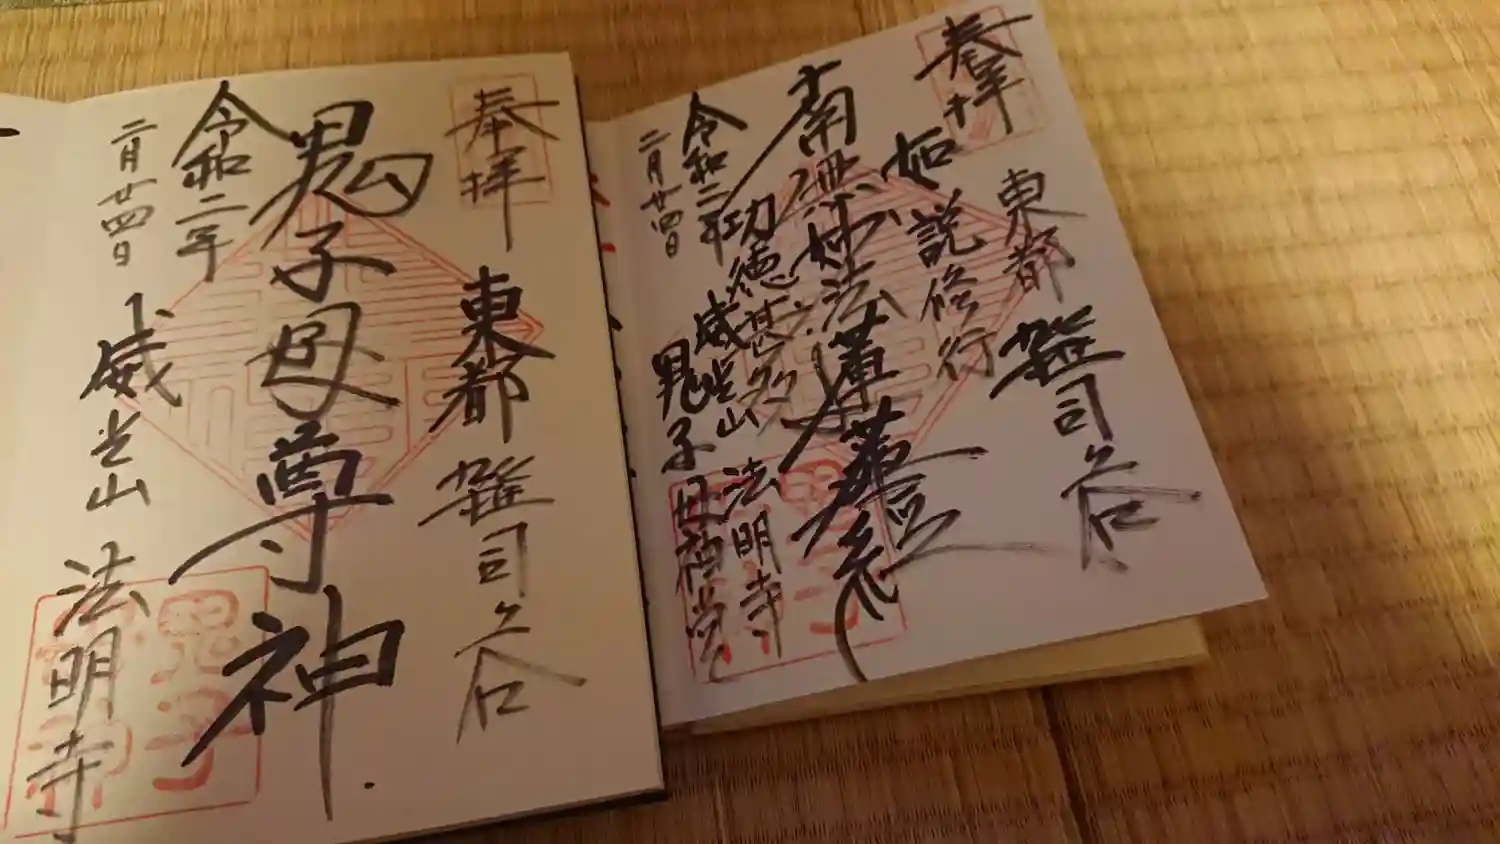 奉拝
東都 雑司ヶ谷
鬼子母尊神
令和二年
二月廿四日
威光山 法明寺
奉拝
東都 雑司ヶ谷
如説修行
南無妙法蓮華経
功徳甚多
令和二年
二月廿四日
威光山 法明寺
鬼子母神堂